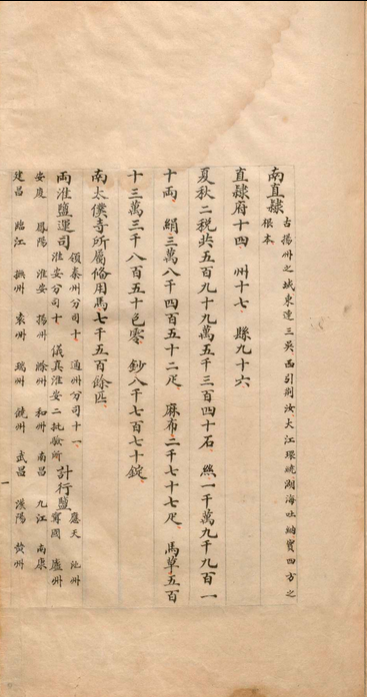 南直隸 古揚州之域東連三吳西引荊汝大江環繞湖海吐納實四方之
根本
直隸府十四 州十七 縣九十六
夏秋二稅共五百九十九萬五千三百四十石 絲一千萬九千九百一
十兩 絹三萬八千四百五十二疋 麻布二千七十七疋 馬草五百
十三萬三千八百五十包零 鈔八千七百七十錠
南太僕寺所屬俻用馬七千五百餘匹
兩淮鹽運司 領泰州分司十 通州分司十一
淮安分司十 儀真淮安二批驗所 計行鹽 應天 池州
寧國 廬州
安慶 鳳陽 淮安 揚州 滁州 和州 南昌 九江 南康
建昌 臨江 撫州 袁州 瑞州 饒州 武昌 漢陽 黃州